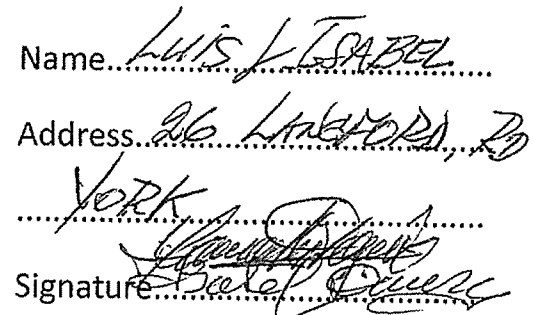 Name..LUIS Y ISABEL
Address..26 LANGFORD, RD
YORK
Signature